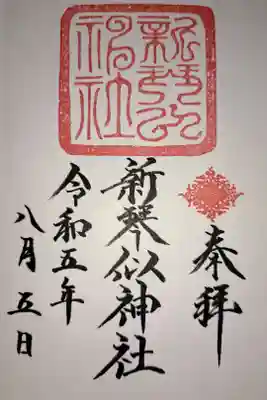 奉拝
新琴似神社
新琴似神社
令和五年
八月五日